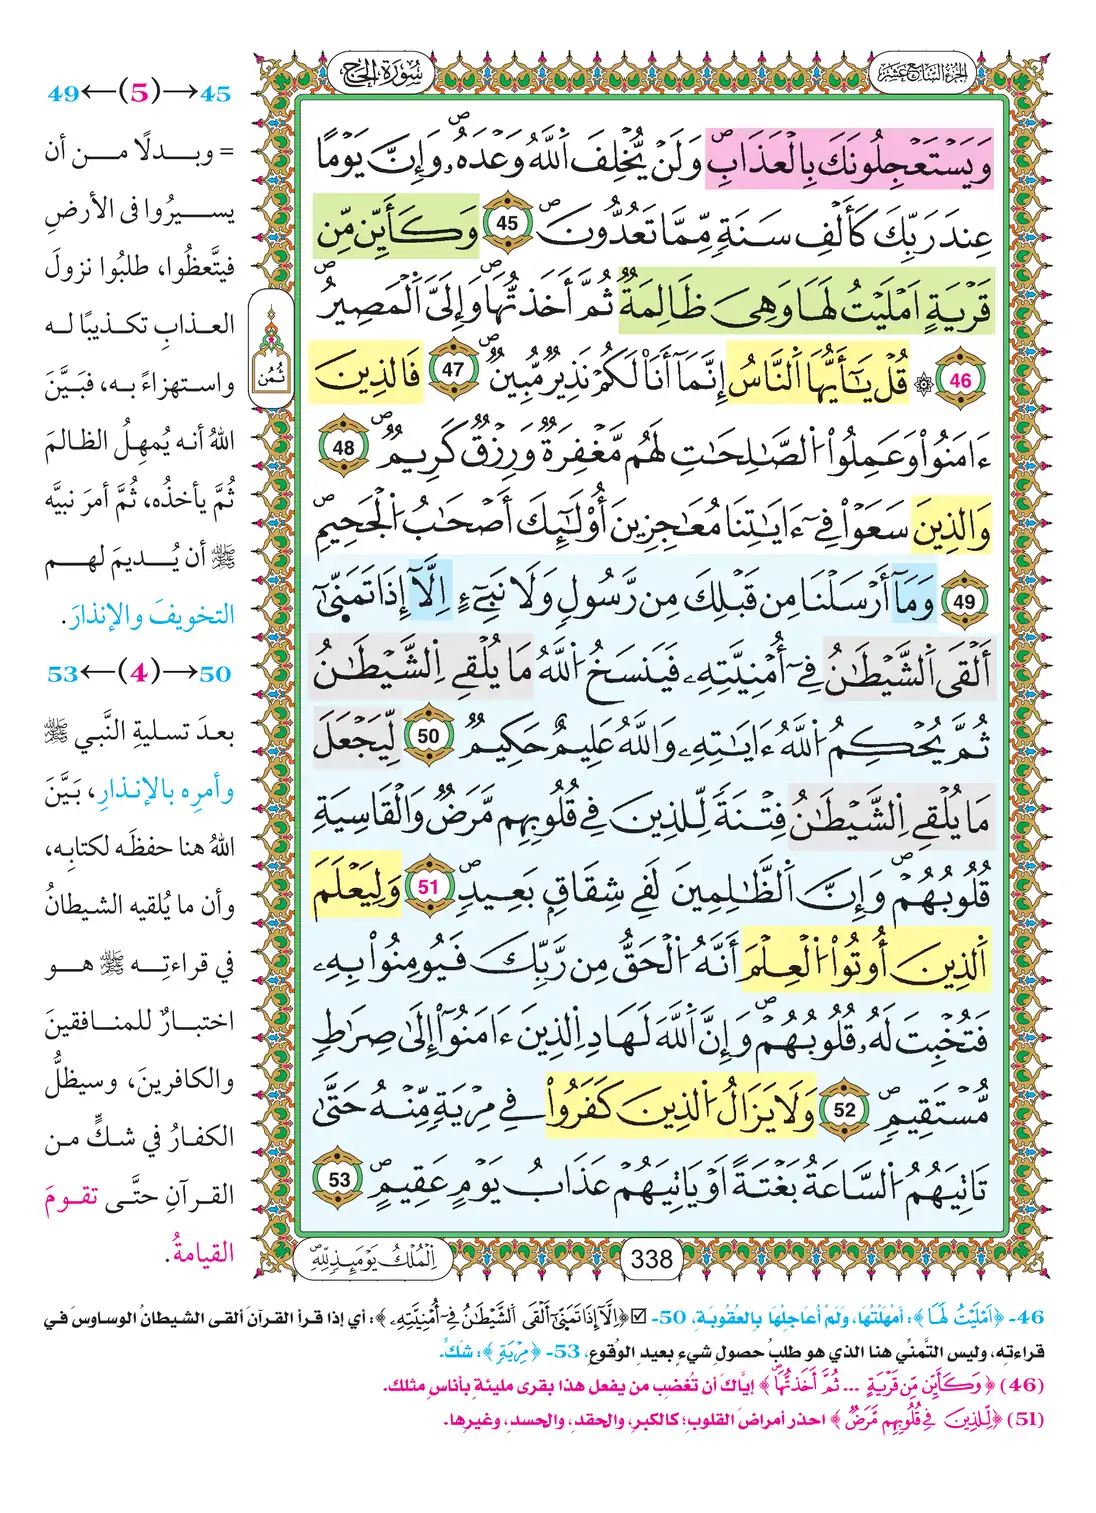 سُورَةُ الحَجِّ
الجزء السابع عشر
وَيَسْتَعْجِلُونَكَ بِالْعَذَابِ وَلَنْ يُّخْلِفَ اَللَّهُ وَعْدَهُۥ وَإِنَّ يَوْمًا
عِندَ رَبِّكَ كَأَلْفِ سَنَةٍ مِّمَّا تَعُدُّونَ 45 وَكَأَيِّن مِّن
قَرْيَةٍ اَمْلَيْتُ لَهَا وَهِيَ ظَالِمَةٌ ثُمَّ أَخَذتُّهَا وَإِلَيَّ اَلْمَصِيرُ
46 ۞ قُلْ يَٰٓأَيُّهَا اَلنَّاسُ إِنَّمَآ أَنَا لَكُمْ نَذِيرٌ مُّبِينٌ 47 فَالذِينَ
ءَامَنُواْ وَعَمِلُواْ اُلصَّٰلِحَٰتِ لَهُم مَّغْفِرَةٌ وَرِزْقٌ كَرِيمٌ 48
وَالذِينَ سَعَوْاْ فِےٓ ءَايَٰتِنَا مُعَٰجِزِينَ أُوْلَٰٓئِكَ أَصْحَٰبُ اُلْجَحِيمِ
49 وَمَآ أَرْسَلْنَا مِن قَبْلِكَ مِن رَّسُولٍ وَلَا نَبِيٓءٍ اِلَّآ إِذَا تَمَنَّىٰٓ
أَلْقَى اَلشَّيْطَٰنُ فِےٓ أُمْنِيَّتِهِۦ فَيَنسَخُ اُللَّهُ مَا يُلْقِے اِلشَّيْطَٰنُ
ثُمَّ يُحْكِمُ اُللَّهُ ءَايَٰتِهِۦ وَاللَّهُ عَلِيمٌ حَكِيمٌ 50 لِّيَجْعَلَ
مَا يُلْقِے اِلشَّيْطَٰنُ فِتْنَةً لِّلذِينَ فِے قُلُوبِهِم مَّرَضٌ وَالْقَاسِيَةِ
قُلُوبُهُمْ وَإِنَّ اَلظَّٰلِمِينَ لَفِے شِقَاقٍ بَعِيدٍ 51 وَلِيَعْلَمَ
اَلذِينَ أُوتُواْ اُلْعِلْمَ أَنَّهُ اُلْحَقُّ مِن رَّبِّكَ فَيُومِنُواْ بِهِۦ
فَتُخْبِتَ لَهُۥ قُلُوبُهُمْ وَإِنَّ اَللَّهَ لَهَادِ اِلذِينَ ءَامَنُوٓاْ إِلَىٰ صِرَٰطٍ
مُّسْتَقِيمٍ 52 وَلَا يَزَالُ اُلذِينَ كَفَرُواْ فِے مِرْيَةٍ مِّنْهُ حَتَّىٰ
تَاتِيَهُمُ اُلسَّاعَةُ بَغْتَةً اَوْ يَاتِيَهُمْ عَذَابُ يَوْمٍ عَقِيمٍ 53
اِلْمُلْكُ يَوْمَئِذٍ لِّلهِ
338
ثُمُن
45→(5)←49
= وبدلًا من أن
يسيرُوا فى الأرضِ
فيتَّعظُوا، طلبُوا نزولَ
العذابِ تكذيبًا له
واستهزاءً به، فبَيَّنَ
اللهُ أنه يُمهِلُ الظالمَ
ثُمَّ يأخذُه، ثُمَّ أمرَ نبيَّه
ﷺ أن يُديمَ لهم
التخويفَ والإنذارَ.
50→(4)←53
بعدَ تسليةِ النَّبي ﷺ
وأمرِه بالإنذارِ، بَيَّنَ
اللهُ هنا حفظَه لكتابِه،
وأن ما يُلقيه الشيطانُ
في قراءتِه ﷺ هو
اختبارٌ للمنافقينَ
والكافرينَ، وسيظلُّ
الكفارُ في شكٍّ من
القرآنِ حتَّى تقومَ
القيامةُ.
46- ﴿اَمْلَيْتُ لَهَا﴾: أمْهَلْتُهَا، ولَمْ أعَاجِلْهَا بِالعُقُوبَةِ، 50- ☑﴿اِلَّآ إِذَا تَمَنَّىٰٓ أَلْقَى اَلشَّيْطَٰنُ فِےٓ أُمْنِيَّتِهِۦ﴾: أي إذا قرأ القرآنَ ألقى الشيطانُ الوساوسَ في
قراءتِه، وليس التَّمنِّي هنا الذي هو طلبُ حصولِ شيءٍ بعيدِ الوقُوعِ، 53- ﴿مِرْيَةٍ﴾: شكٍّ.
(46) ﴿وَكَأَيِّن مِّن قَرْيَةٍ ... ثُمَّ أَخَذتُّهَا﴾ إيَّاكَ أن تُغضِب من يفعل هذا بقرى مليئةٍ بأناسٍ مثلك.
(51) ﴿لِّلذِينَ فِے قُلُوبِهِم مَّرَضٌ﴾ احذر أمراضَ القلوبِ؛ كالكبرِ، والحقدِ، والحسدِ، وغيرِها.